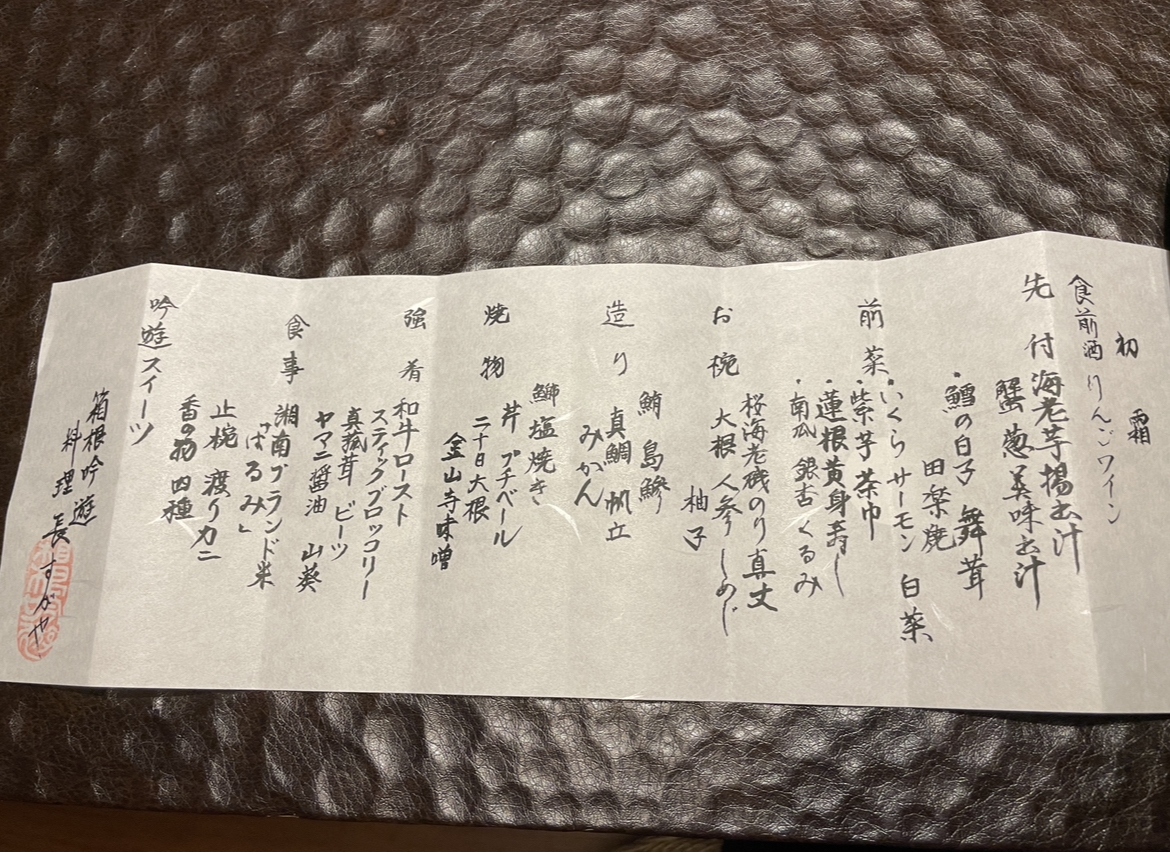 初霜
食前酒 りんごワイン
先付 海老芋揚出汁
蟹 葱 美味出汁
・鱈の白子 舞茸
田楽焼
前菜 ・いくらサーモン 白菜
・紫芋茶巾
・蓮根黄身寿し
・南瓜 銀杏 くるみ
お椀 桜海老磯のり真丈
大根 人参 しめじ
柚子
造り 鮪 島鰺
真鯛 帆立
みかん
焼物 鰤塩焼き
芹 プチベール
二十日大根
金山寺味噌
強肴 和牛ロースト
スティックブロッコリー
真菰茸 ビーツ
ヤマニ醤油 山葵
食事 湘南ブランド米
「はるみ」
止椀 渡りカニ
香の物 四種
吟遊スイーツ
箱根吟遊
料理長 すがや